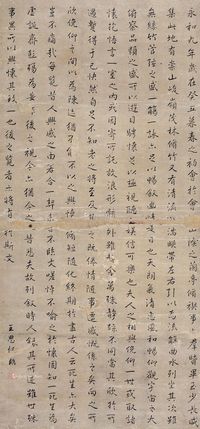 永和九年歲在癸丑暮春之初會於會稽山陰之蘭亭脩禊事也羣賢畢至少長咸
集此地有崇山峻領茂林脩竹又有清流激湍暎帶左右引以為流觴曲水列坐其次雖
無絲竹管弦之盛一觴一詠亦足以暢敘幽情是日也天朗氣清惠風和暢仰觀宇宙之大
俯察品類之盛所以遊目騁懷足以極視聽之娛信可樂也夫人之相與俯仰一世或取諸
懷抱悟言一室之內或因寄所託放浪形骸之外雖趣舍萬殊靜躁不同當其欣於所
遇暫得於己快然自足不知老之將至及其所之既倦情隨事遷感慨係之矣向之所
欣俛仰之間以為陳迹猶不能不以之興懷況脩短隨化終期於盡古人云死生亦大矣
豈不痛哉每覽昔人興感之由若合一契未嘗不臨文嗟悼不能喻之於懷固知一死生為
虛誕齊彭殤為妄作後之視今亦猶今之視昔悲夫故列敘時人錄其所述雖世殊
事異所以興懷其致一也後之覽者亦將有感於斯文
王思任